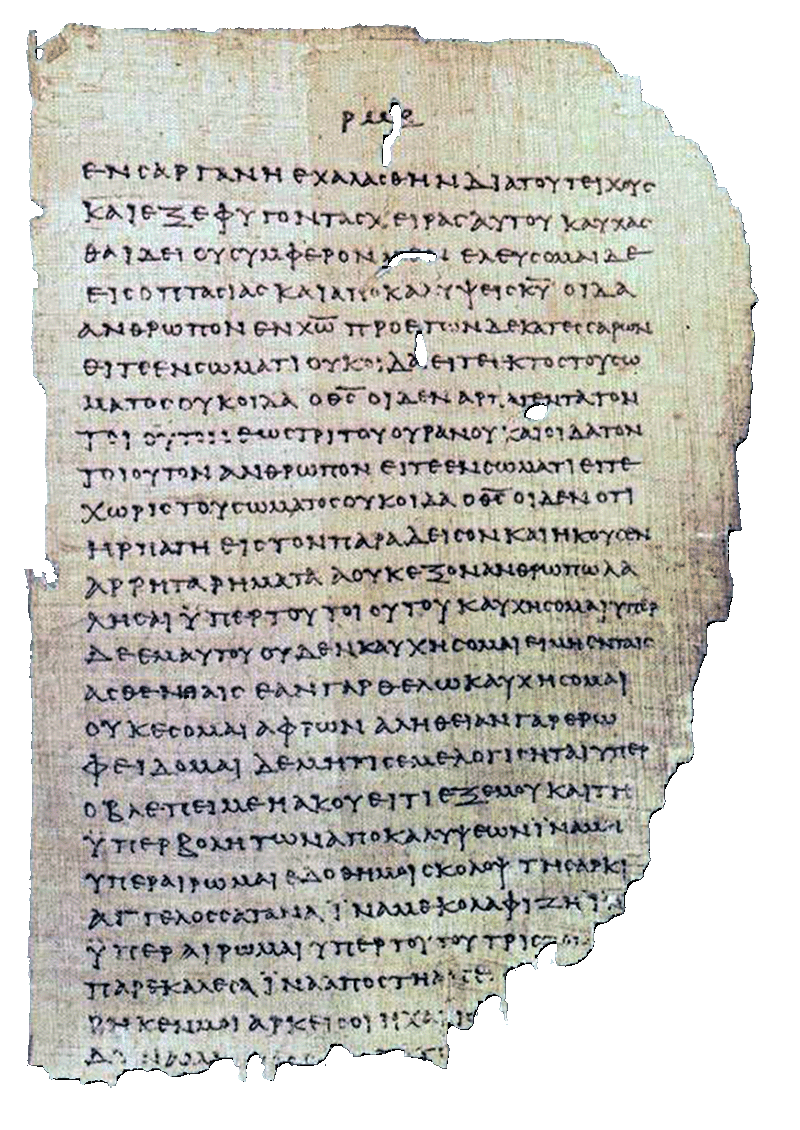 ρμε
ΕΝ ΣΑΡΓΑΝΗ ΕΧΑΛΑΣΘΗΝ ΔΙΑ ΤΟΥ ΤΕΙΧΟΥΣ
ΚΑΙ ΕΞΕΦΥΓΟΝ ΤΑΣ ΧΕΙΡΑΣ ΑΥΤΟΥ ΚΑΥΧΑΣ
ΘΑΙ ΔΕΙ ΟΥ ΣΥΜΦΕΡΟΝ ΜΕΝ ΕΛΕΥΣΟΜΑΙ ΔΕ
ΕΙΣ ΟΠΤΑΣΙΑΣ ΚΑΙ ΑΠΟΚΑΛΥΨΕΙΣ Κ̅Υ̅ ΟΙΔΑ
ΑΝΘΡΩΠΟΝ ΕΝ Χ̅Ω̅ ΠΡΟ ΕΤΩΝ ΔΕΚΑΤΕΣΣΑΡΩΝ
ΕΙΤΕ ΕΝ ΣΩΜΑΤΙ ΟΥΚ ΟΙΔΑ ΕΙΤΕ ΕΚΤΟΣ ΤΟΥ ΣΩ
ΜΑΤΟΣ ΟΥΚ ΟΙΔΑ Ο Θ̅Σ̅ ΟΙΔΕΝ ΑΡΠΑΓΕΝΤΑ ΤΟΝ
ΤΟΙΟΥΤΟΝ ΕΩΣ ΤΡΙΤΟΥ ΟΥΡΑΝΟΥ ΚΑΙ ΟΙΔΑ ΤΟΝ
ΤΟΙΟΥΤΟΝ ΑΝΘΡΩΠΟΝ ΕΙΤΕ ΕΝ ΣΩΜΑΤΙ ΕΙΤΕ
ΧΩΡΙΣ ΤΟΥ ΣΩΜΑΤΟΣ ΟΥΚ ΟΙΔΑ Ο Θ̅Σ̅ ΟΙΔΕΝ ΟΤΙ
ΗΡΠΑΓΗ ΕΙΣ ΤΟΝ ΠΑΡΑΔΕΙΣΟΝ ΚΑΙ ΗΚΟΥΣΕΝ
ΑΡΡΗΤΑ ΡΗΜΑΤΑ Α ΟΥΚ ΕΞΟΝ ΑΝΘΡΩΠΩ ΛΑ
ΛΗΣΑΙ ΫΠΕΡ ΤΟΥ ΤΟΙΟΥΤΟΥ ΚΑΥΧΗΣΟΜΑΙ ΥΠΕΡ
ΔΕ ΕΜΑΥΤΟΥ ΟΥΔΕΝ ΚΑΥΧΗΣΟΜΑΙ ΕΙ ΜΗ ΕΝ ΤΑΙΣ
ΑΣΘΕΝΕΙΑΙΣ ΕΑΝ ΓΑΡ ΘΕΛΩ ΚΑΥΧΗΣΟΜΑΙ
ΟΥΚ ΕΣΟΜΑΙ ΑΦΡΩΝ ΑΛΗΘΕΙΑΝ ΓΑΡ ΕΡΩ
ΦΕΙΔΟΜΑΙ ΔΕ ΜΗ ΤΙΣ ΕΜΕ ΛΟΓΙΣΗΤΑΙ ΥΠΕΡ
Ο ΒΛΕΠΕΙ ΜΕ Η ΑΚΟΥΕΙ ΤΙ ΕΞ ΕΜΟΥ ΚΑΙ ΤΗ
ΫΠΕΡΒΟΛΗ ΤΩΝ ΑΠΟΚΑΛΥΨΕΩΝ ΪΝΑ ΜΗ
ΥΠΕΡΑΙΡΩΜΑΙ ΕΔΟΘΗ ΜΟΙ ΣΚΟΛΟΨ ΤΗ ΣΑΡΚΙ
ΑΓΓΕΛΟΣ ΣΑΤΑΝΑ ΪΝΑ ΜΕ ΚΟΛΑΦΙΖΗ ΪΝΑ
ΫΠΕΡΑΙΡΩΜΑΙ ΥΠΕΡ ΤΟΥΤΟΥ ΤΡΙΣ
ΠΑΡΕΚΑΛΕΣΑ ΪΝΑ ΑΠΟΣΤΗ
ΡΗΚΕΝ ΜΟΙ ΑΡΚΕΙ ΣΟΙ Η ΧΑ